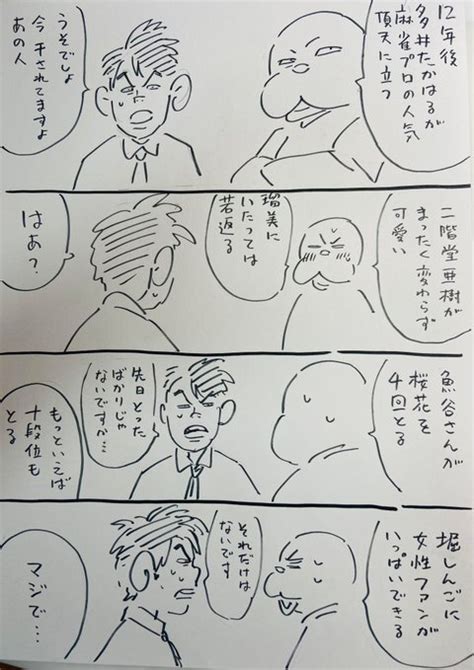 12年後
多井たかはるが
麻雀プロの人気
頂天に立つ
うそでしょ
今干されてますよ
あの人
二階堂亜樹が
まったく変わらず
可愛い
瑠美に
いたっては
若返る
はあ？
魚谷さんが
桜花を
4回とる
先日とった
ばかりじゃ
ないですか…
もっといえば
十段位も
とる
堀しんごに
女性ファンが
いっぱいできる
それだけは
ないです
マジで…